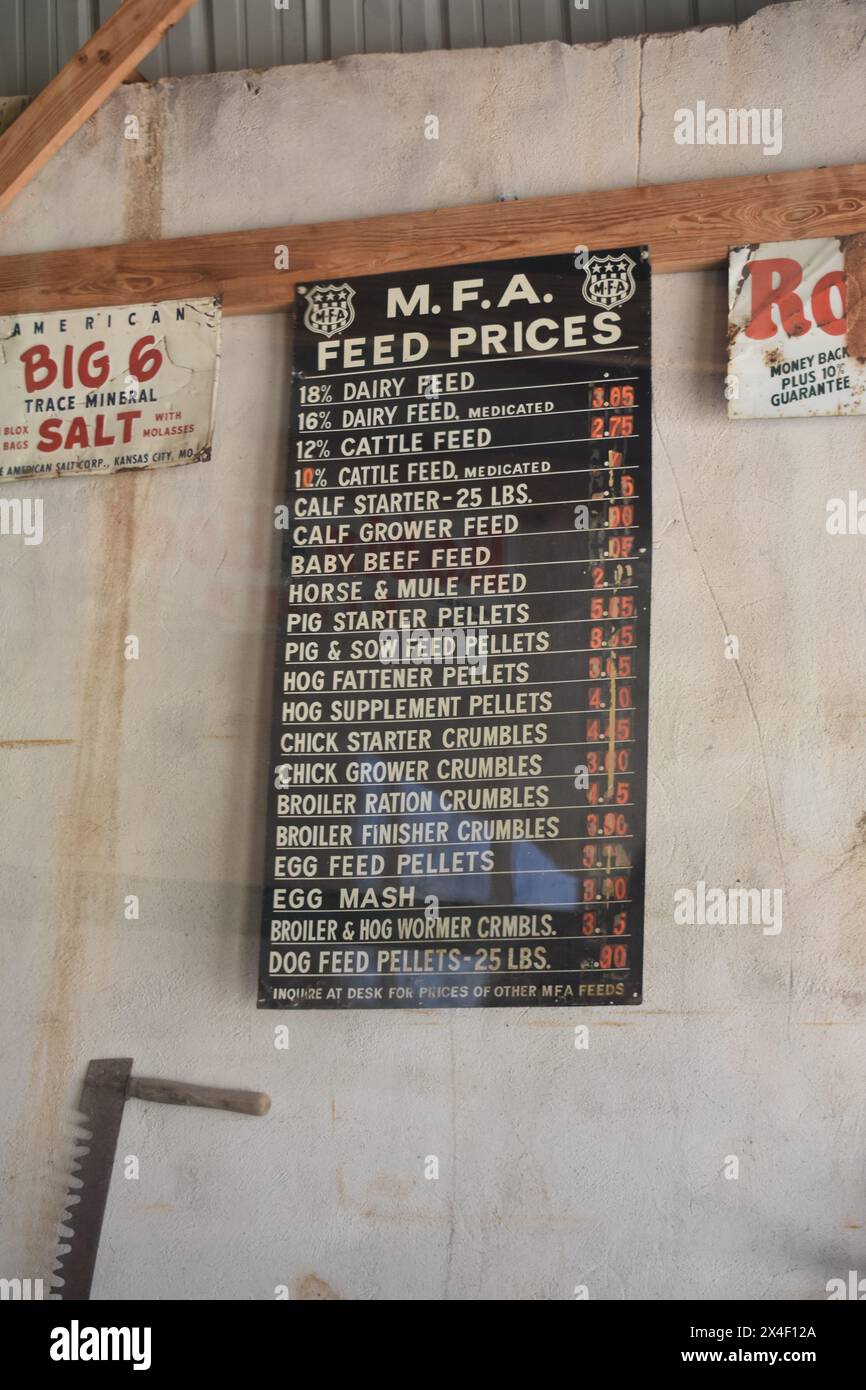 AMERICAN
BIG 6
TRACE MINERAL
BLOX
BAGS
SALT
WITH
MOLASSES
AMERICAN SALT CORP., KANSAS CITY, MO.
M.F.A.
MFA
MFA
FEED PRICES
18% DAIRY FEED
16% DAIRY FEED, MEDICATED 3.65
12% CATTLE FEED 2.75
10% CATTLE FEED, MEDICATED
CALF STARTER-25 LBS.
CALF GROWER FEED
BABY BEEF FEED
HORSE & MULE FEED
PIG STARTER PELLETS
PIG & SOW FEED PELLETS
HOG FATTENER PELLETS
HOG SUPPLEMENT PELLETS
CHICK STARTER CRUMBLES
CHICK GROWER CRUMBLES
BROILER RATION CRUMBLES
BROILER FINISHER CRUMBLES 3.90
EGG FEED PELLETS
EGG MASH
BROILER & HOG WORMER CRMBLS.
DOG FEED PELLETS-25 LBS. .90
INQUIRE AT DESK FOR PRICES OF OTHER MFA FEEDS
Ro
MONEY BACK
PLUS 10%
GUARANTEE
alamy
alamy
Image ID: 2X4F12A
www.alamy.com